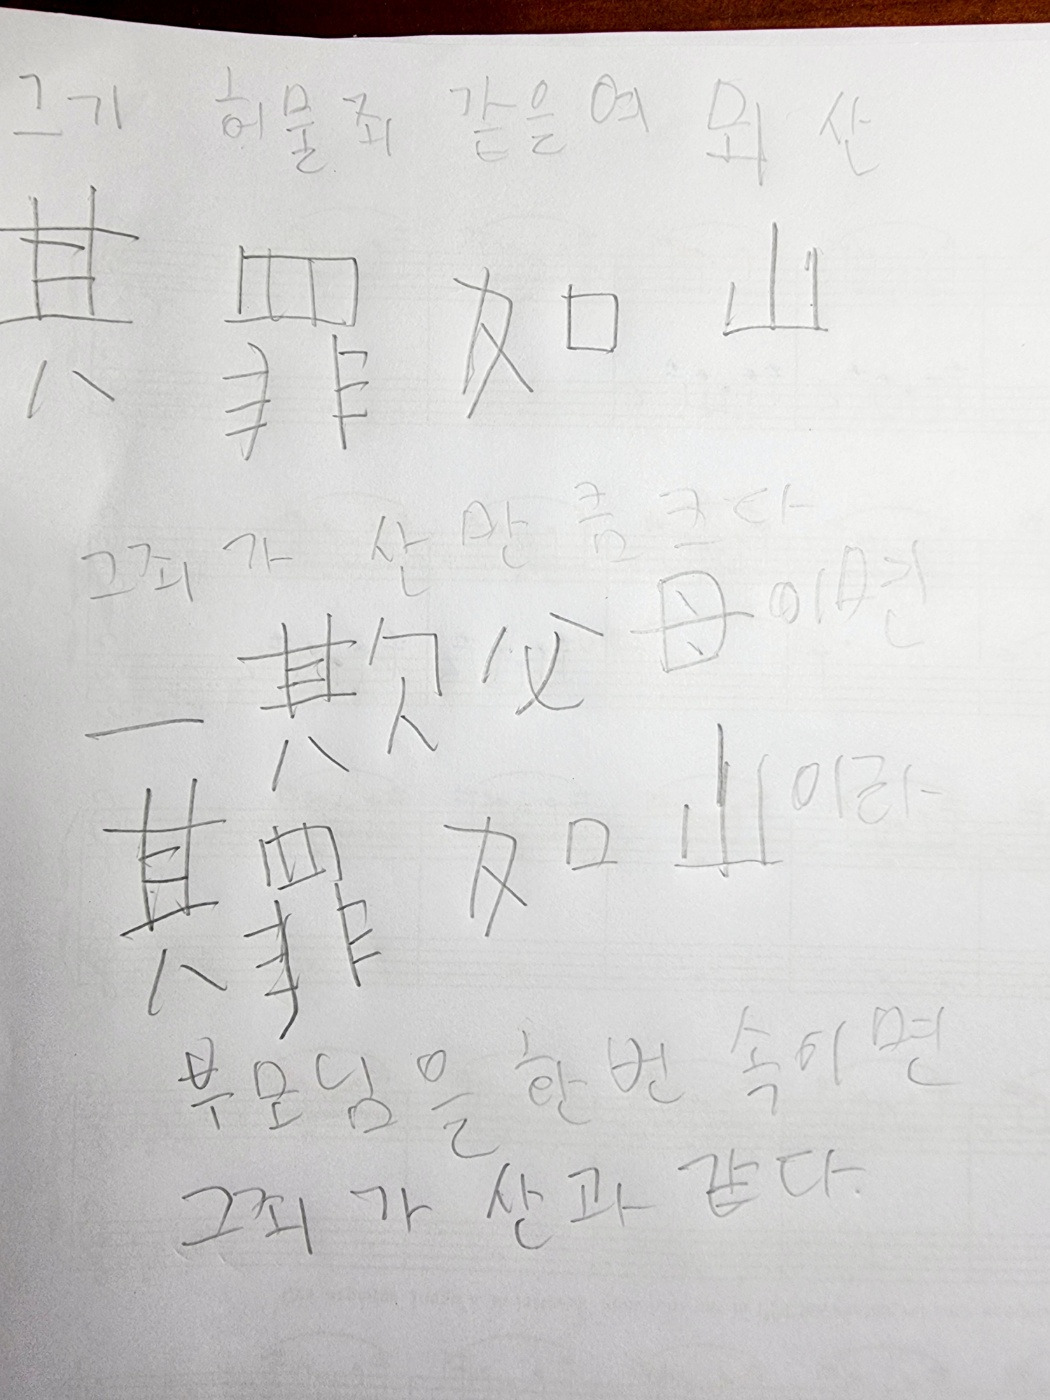 그기 허물죄 같을여 뫼산
其 罪 如 山
그죄가 산만큼크다
一 欺 父 母이면
其 罪 如 山이라
부모님을 한번 속이면
그죄가 산과 같다.